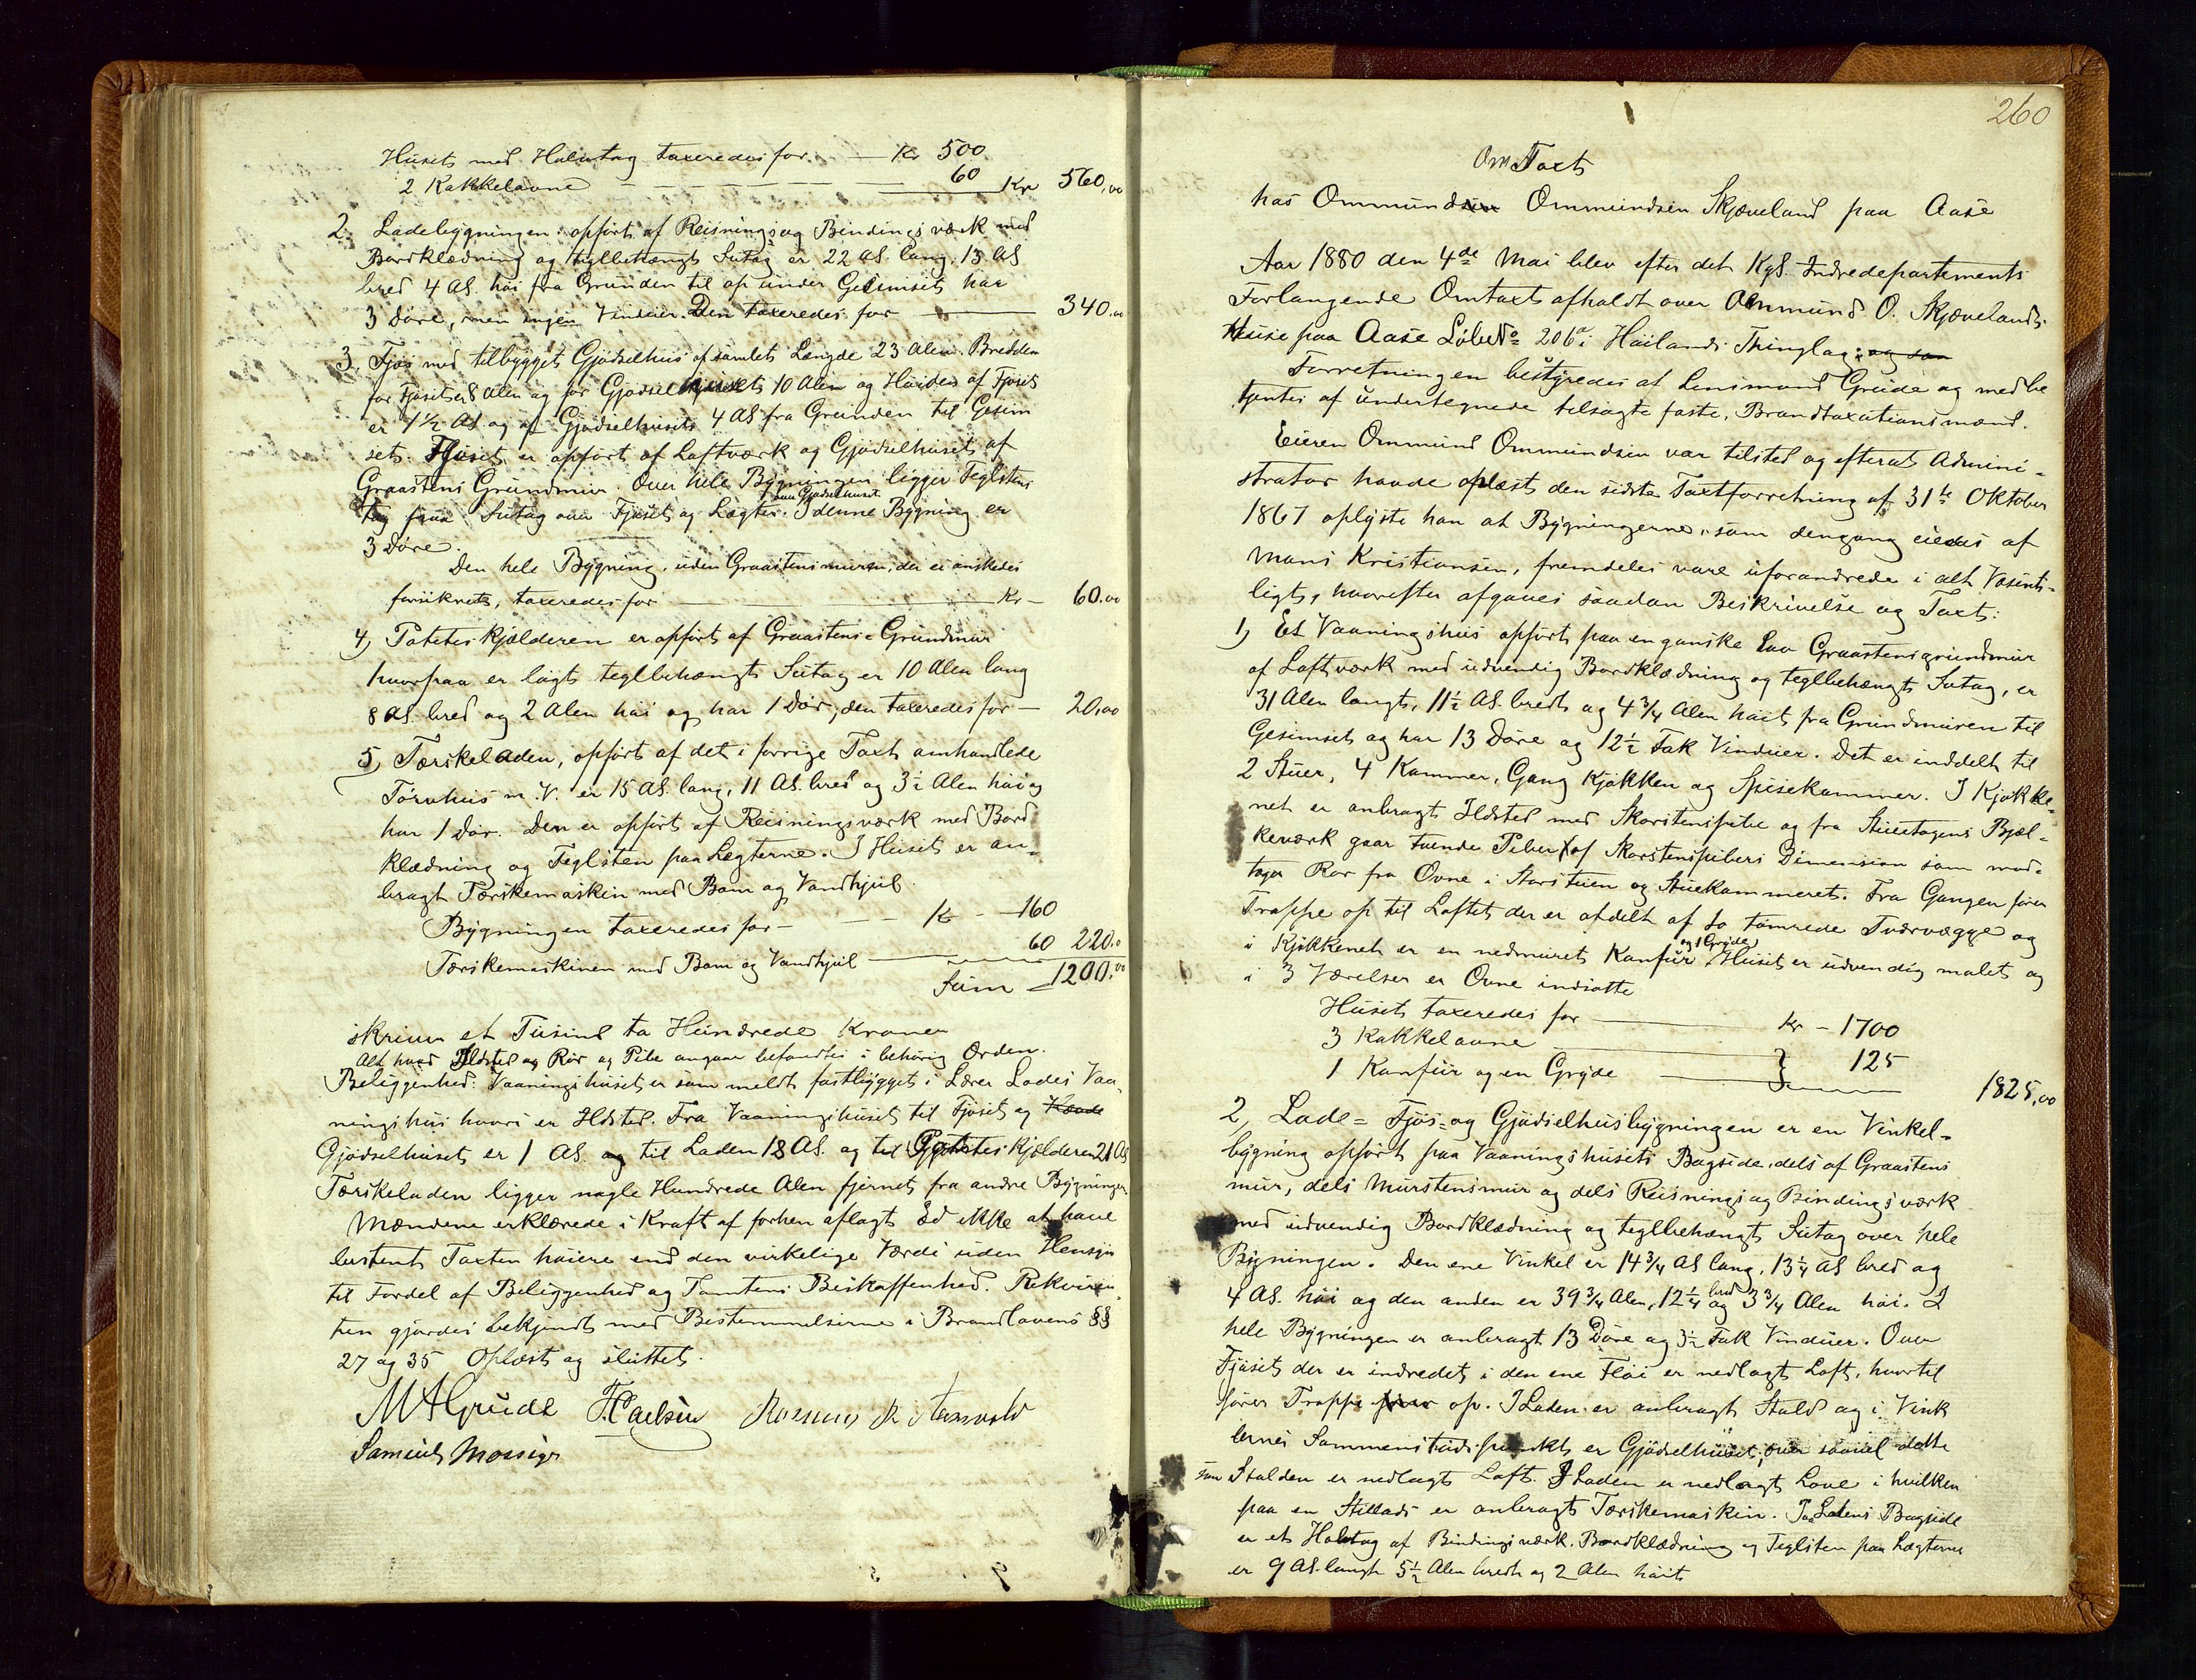 Huset med Halvtag taxeredes for — Kr 500
2 Kakkelovne — 60 Kr 560,00
2. Ladebygningen opført af Reisnings og Bindingsværk med
Bordklædning og teglbehængt Sutag er 22 Al. lang, 13 Al
bred 4 Al. høi fra Grunden til op under Gesimset har
3 Døre, men ingen Vinduer. Den taxeredes for — 340.00
3, Fjøs med tilbygget Gjødselhus af samlet Længde 23 Alen. Bredden
for Fjøset er 8 Alen og for Gjødselhuset 10 Alen og Høiden af Fjøset
er 4 1/2 Al. og af Gjødselhuset 4 Al fra Grunden til Gesim
set. Fjøset er opført af Laftværk og Gjødselhuset af
Graastens Grundmur. Over hele Bygningen ligger Teglstens
paa Gjødselhuset
tag paa Sutag over Fjøset og Lægter. I denne Bygning er
3 Døre.
Den hele Bygning, uden Graastensmuren, der ei ønskedes
forsikret, taxeredes for — Kr — 60.00
4, Poteteskjælderen er opført af Graastens Grundmur
hvorpaa er lagt teglbehængt Sutag er 10 Alen lang
8 Al. bred og 2 Alen høi og har 1 Dør, den taxeredes for — 20,00
5, Tærskeladen, opført af det i forrige Taxt omhandlede
Tørvhus m. V. er 15 Al. lang, 11 Al. bred og 3 1/2 Alen høi og
har 1 Dør. Den er opført af Reisningsværk med Bord
klædning og Teglsten paa Lægterne. I Huset er an-
bragt Tærskemaskin med Bom og Vandhjul.
Bygningen taxeredes for — Kr — 160
Tærskemaskinen med Bom og Vandhjul — 60 220.0
Sum 1200.00
skriver et Tusind to Hundrede Kroner
Alt hvad Ildsted og Rør og Pibe angaar befandtes i behørig Orden.
Beliggenhed: Vaaningshuset er som meldt fastbygget i Lærer Lodes Vaa-
ningshus hvori er Ildsted. Fra Vaaningshuset til Fjøset og
Gjødselhuset er 1 Al. og til Laden 18 Al. og til Poteteskjælderen 21 Al
Tærskeladen ligger nogle Hundrede Alen fjernet fra andre Bygninger
Mændene erklærede i Kraft af forhen aflagt Ed ikke at have
bestemt Taxten høiere end den virkelige Værdi uden Hensyn
til Fordel af Beliggenhed og Tomtens Beskaffenhed. Rekviren
ten gjordes bekjendt med Bestemmelserne i Brandlovens §§
27 og 35 Oplæst og sluttet.
MAGrude T. Carlsen Rasmus R
Samuel Mossige
260
Om Taxt
hos Ommundsen Ommundsen Skjæveland paa Aase
Aar 1880 den 4de Mai blev efter det Kgl. Indredepartements
Forlangende Omtaxt afholdt over Ommund O. Skjævelands
Huse paa Aase Løbe No 206a i Høilands Thinglag og som
Forretningen bestyredes af Lensmand Grude og med be
tjentes af undertegnede tilsagte faste Brandtaxationsmænd.
Eieren Ommund Ommundsen var tilsted og efterat Admini-
strator havde oplæst den sidste Taxtforretning af 31te Oktober
1867 oplyste han at Bygningerne, som dengang eiedes af
Mons Kristiansen, fremdeles vare uforandrede i alt Væsent-
ligt, hvorefter afgaves saadan Beskrivelse og Taxt:
1, Et Vaaningshus opført paa en ganske lav Graastensgrundmur
af Laftværk med udvendig Bordklædning og teglbehængt Sutag, er
31 Alen langt, 11 1/2 Al. bredt og 4 3/4 Alen høit fra Grundmuren til
Gesimset og har 13 Døre og 12 1/2 Fak Vinduer. Det er inddelt til
2 Stuer, 4 Kammer, Gang Kjøkken og Spisekammer. I Kjøkke-
net er anbragt Ildsted med Skorstenspibe og fra Stuetagens Bjæl-
keværk gaar tvende Piber af Skorstenspibers Dimension som mod-
tager Rør fra Ovne i Storstuen og Stuekammeret. Fra Gangen fører
Trappe op til Loftet der er afdelt af to tømrede Tværvægge og
og 1 Gryde
i Kjøkkenet er en nedmuret Komfur Huset er udvendig malet og
i 3 Værelser er Ovne indsatte
Huset taxeredes for — Kr — 1700
3 Kakkelovne
1 Komfur og en Gryde — } 125
1825,00
2, Lade- Fjøs- og Gjødselhusbygningen er en Vinkel-
bygning opført paa Vaaningshusets Bagside, dels af Graastens
mur, dels Murstensmur og dels Reisnings og Bindingsværk
med udvendig Bordklædning og teglbehængt Sutag over hele
Bygningen. Den ene Vinkel er 14 3/4 Al lang, 13 1/4 Al bred og
bred
4 Al. høi og den anden er 39 3/4 Alen, 12 1/4 og 3 3/4 Alen høi. I
hele Bygningen er anbragt 13 Døre og 3 1/2 Fak Vinduer. Over
Fjøset der er indredet i den ene Fløi er nedlagt Loft, hvortil
fører Trappe op. I Laden er anbragt Stald og i Vink
lernes Sammenstødspunkt er Gjødselhuset, over saavel dette
som Stalden er nedlagt Loft. I Laden er nedlagt Love i hvilken
paa en Stillads er anbragt Tærskemaskin. Paa Ladens Bagside
er et Halvtag af Bindingsværk, Bordklædning og Teglsten paa Lægterne
er 9 Al. langt 5 1/2 Alen bredt og 2 Alen høit